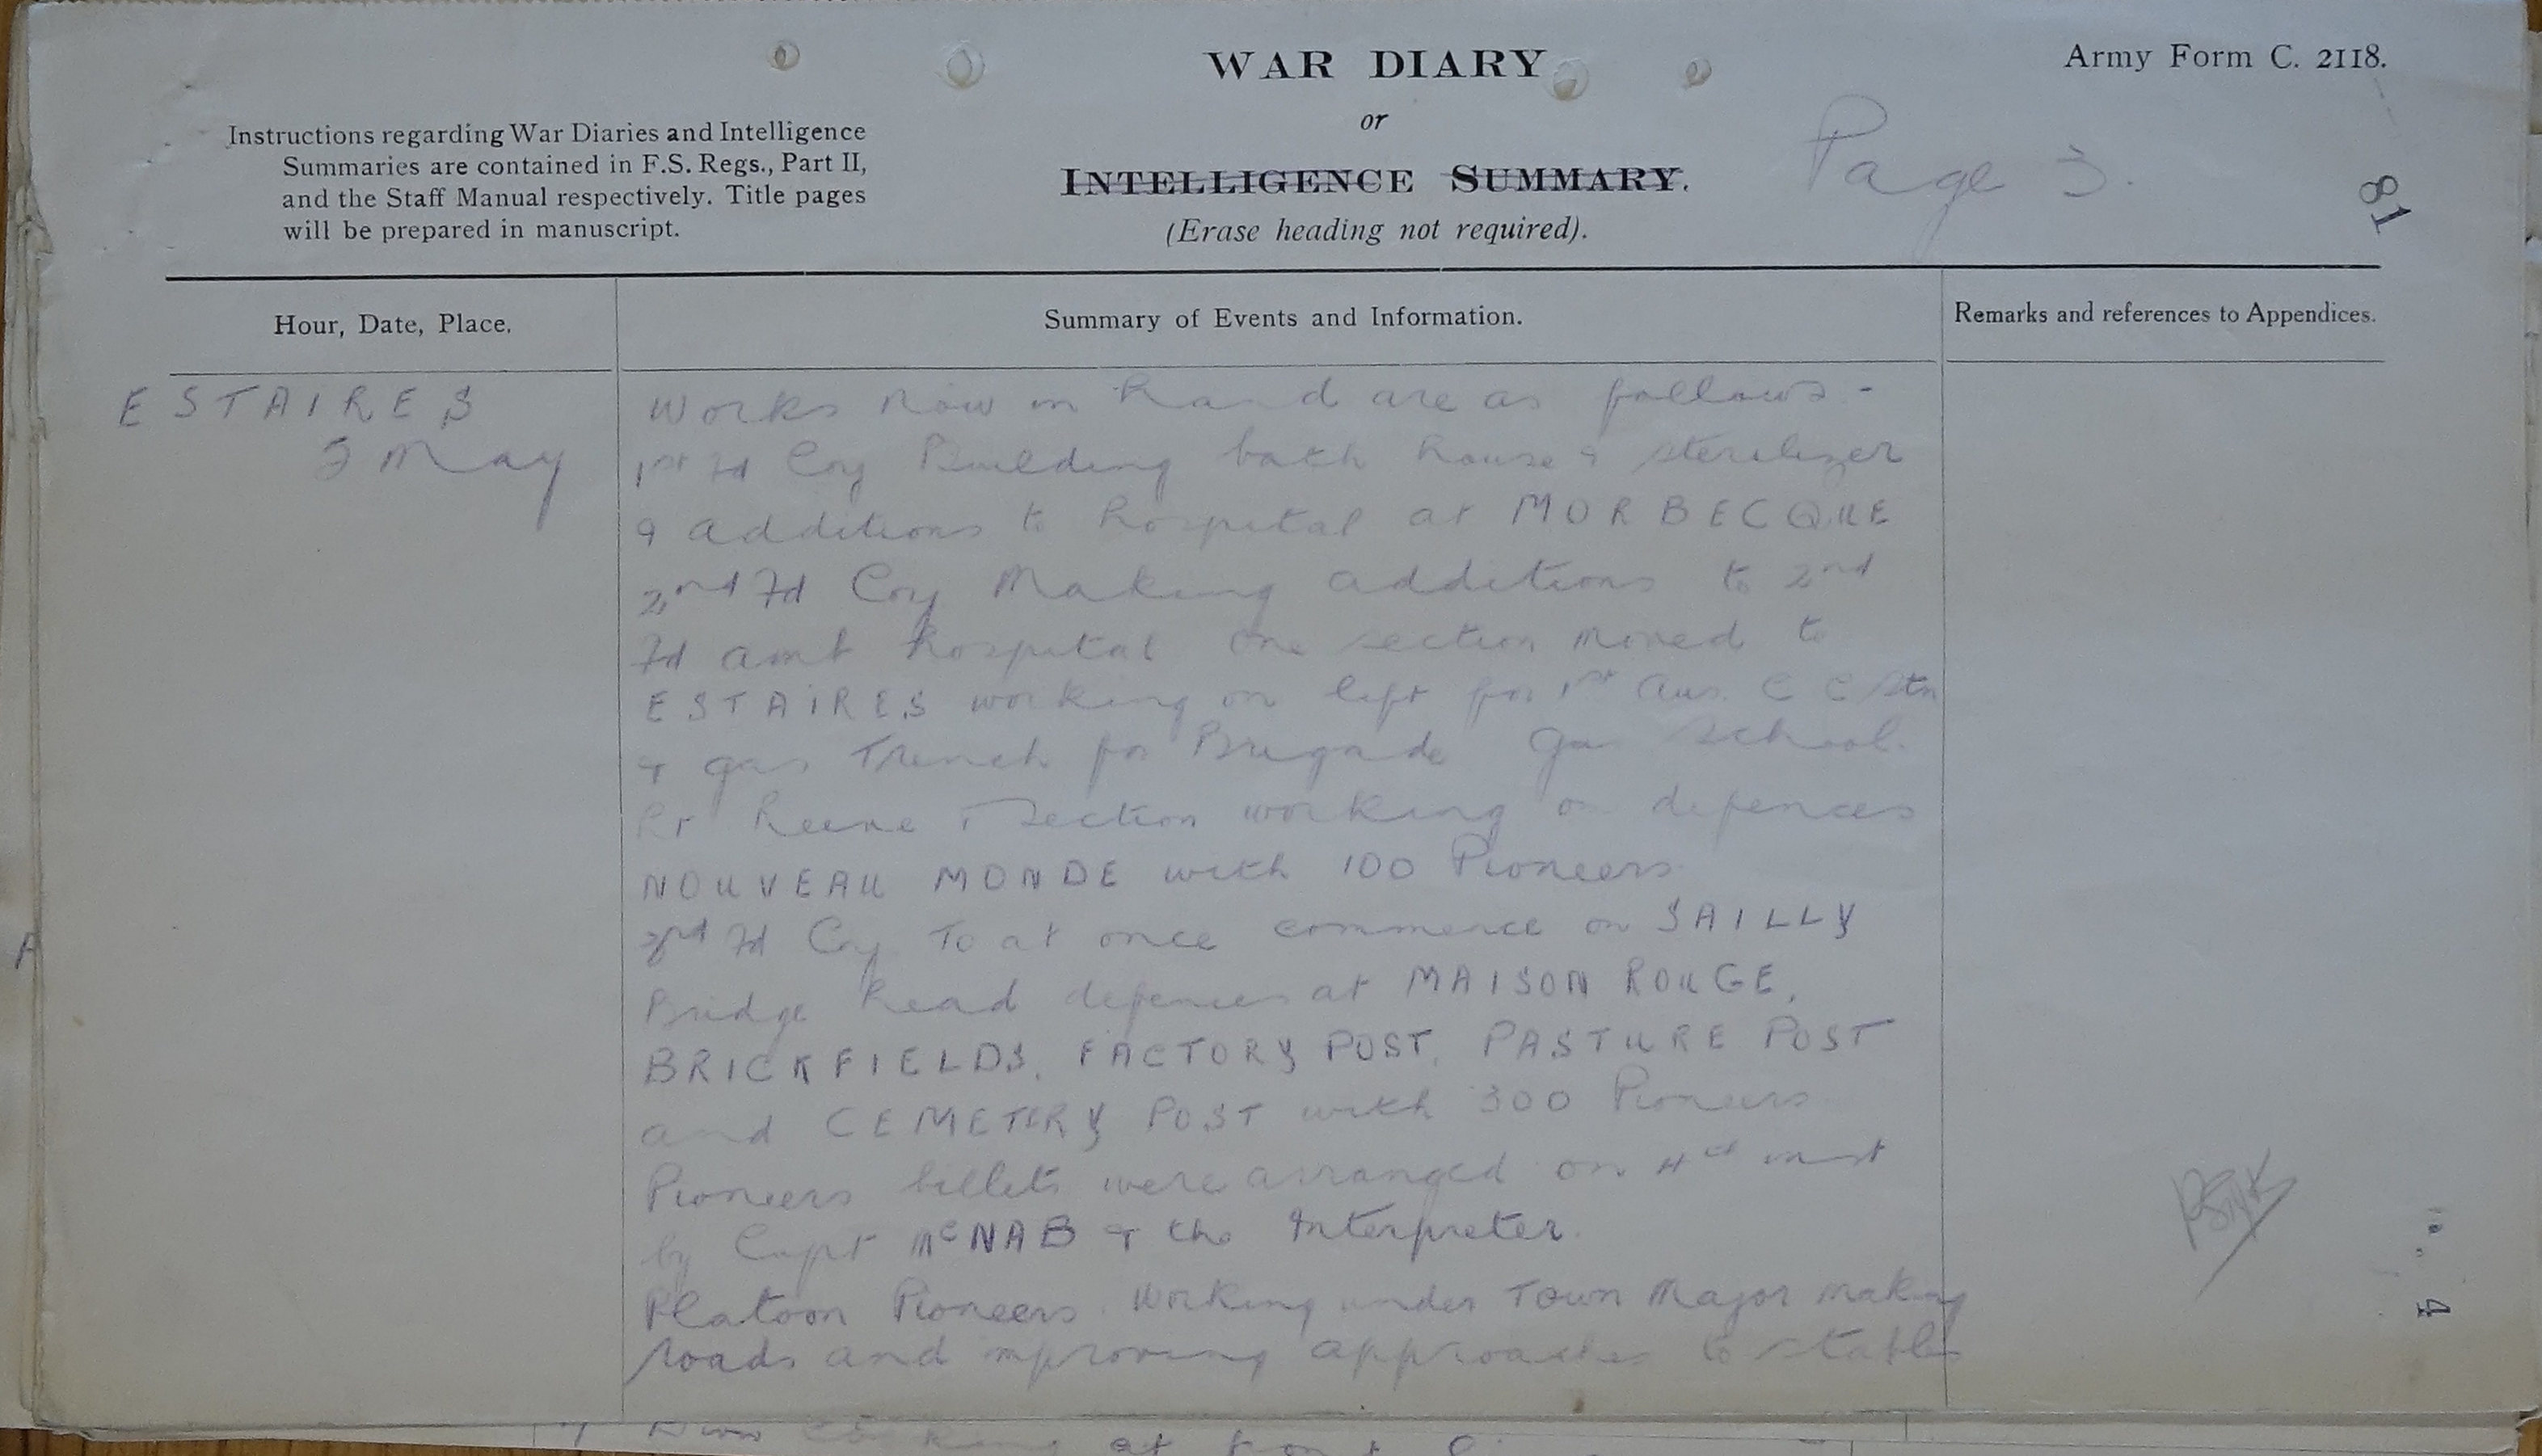 WAR DIARY
or
INTELLIGENCE SUMMARY.
(Erase heading not required).
Army Form C. 2118.
Instructions regarding War Diaries and Intelligence
Summaries are contained in F.S. Regs., Part II,
and the Staff Manual respectively. Title pages
will be prepared in manuscript.
Page 3.
81
Hour, Date, Place.
Summary of Events and Information.
Remarks and references to Appendices.
ESTAIRES
May
Works now in hand are as follows -
1st Fd Coy Building bath house & sterilizer
& additions to hospital at MORBECQUE
2nd Fd Coy Making additions to 2nd
Fd amb hospital one section moved to
ESTAIRES working on left for 1st Aus. C C Stn
+ gas Trench for Brigade Gas School.
section working on defences
NOUVEAU MONDE with 100 Pioneers
3rd Fd Coy To at once commence on SAILLY
Bridge head defences at MAISON ROUGE,
BRICKFIELDS, FACTORY POST, PASTURE POST
and CEMETERY POST with 300 Pioneers
Pioneers billets were arranged on 4th inst
by Capt McNAB + the Interpreter.
Platoon Pioneers. Working under Town Major making
roads and improving approaches to stables
4